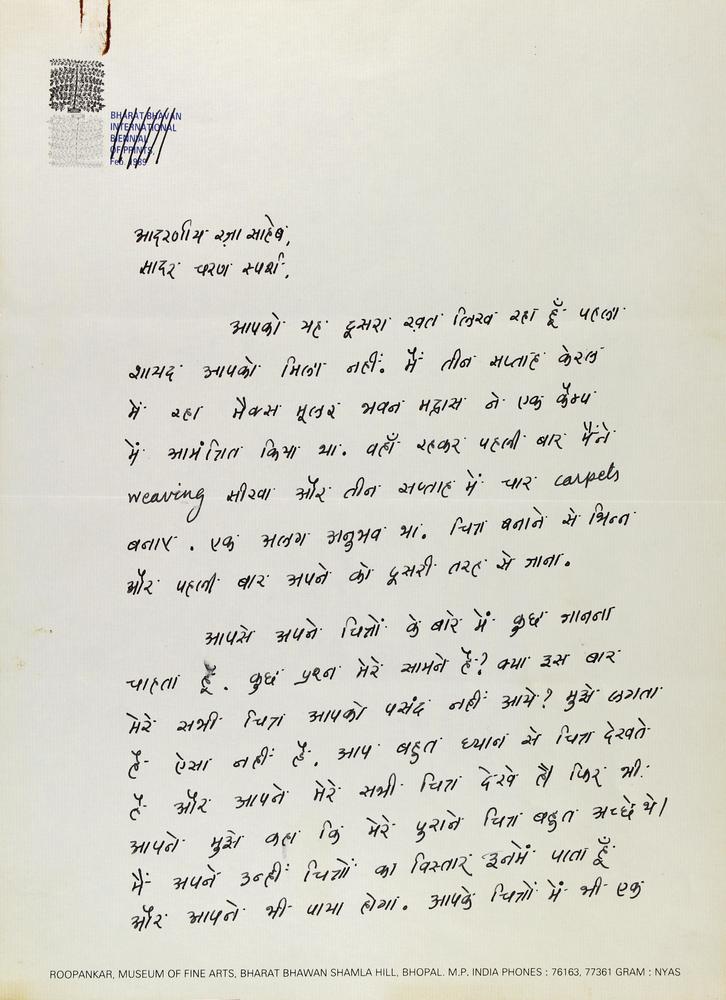 BHARAT BHAVAN
INTERNATIONAL
BIENNIAL
OF PRINTS
Feb. 1989
आदरणीय रज़ा साहेब,
सादर चरण स्पर्श,
आपको यह दूसरा ख़त लिख रहा हूँ पहला
शायद आपको मिला नहीं. मैं तीन सप्ताह केरल
में रहा मैक्स मूलर भवन मद्रास ने एक कैम्प
में आमंत्रित किया था. वहाँ रहकर पहली बार मैंने
weaving सीखा और तीन सप्ताह में चार carpets
बनाए . एक अलग अनुभव था. चित्र बनाने से भिन्न
और पहली बार अपने को दूसरी तरह से जाना.
आपसे अपने चित्रों के बारे में कुछ जानना
चाहता हूँ. कुछ प्रश्न मेरे सामने है? क्या इस बार
मेरे सभी चित्र आपको पसंद नहीं आये? मुझे लगता
है ऐसा नहीं है. आप बहुत ध्यान से चित्र देखते
है और आपने मेरे सभी चित्र देखे हैं फिर भी
आपने मुझे कहा कि मेरे पुराने चित्र बहुत अच्छे थे/
मैं अपने उन्हीं चित्रों का विस्तार इनमें पाता हूँ
और आपने भी पाया होगा. आपके चित्रों में भी एक
ROOPANKAR, MUSEUM OF FINE ARTS, BHARAT BHAWAN SHAMLA HILL, BHOPAL. M.P. INDIA PHONES : 76163, 77361 GRAM : NYAS